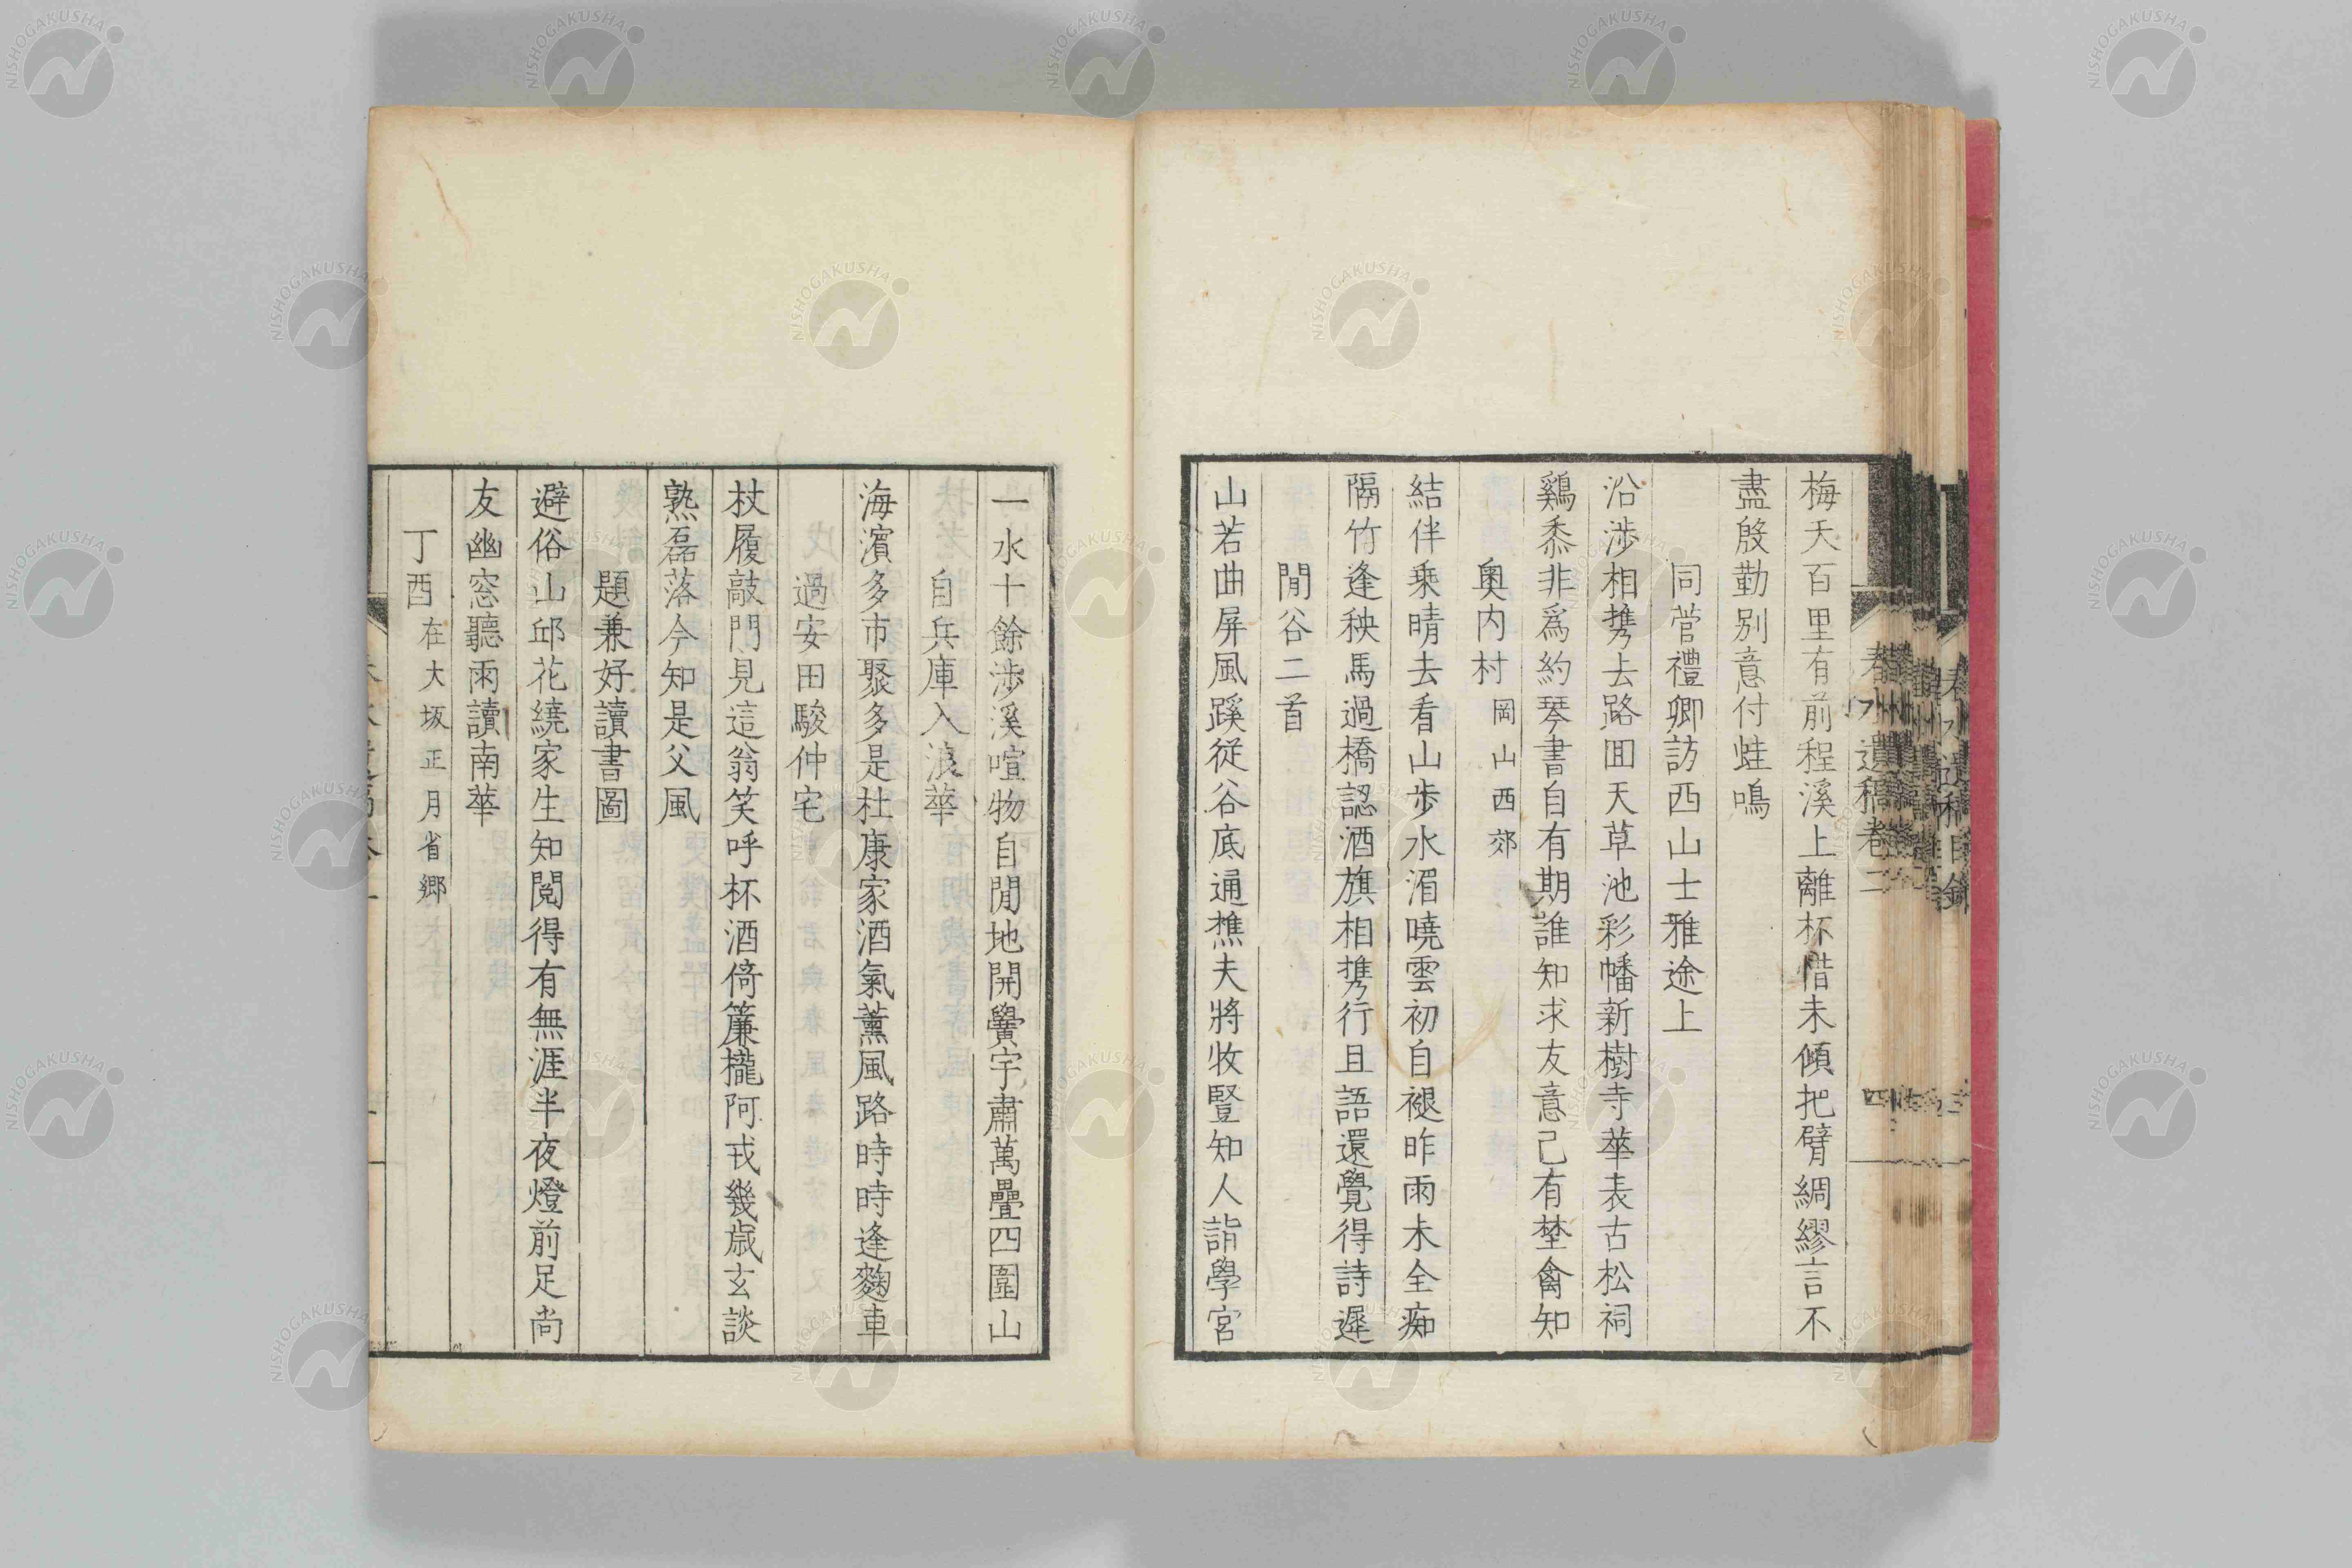 梅天百里有前程溪上離杯惜未傾把臂綢繆言不
盡殷勤別意付蛙鳴
同菅禮卿訪西山士雅途上
沿涉相携去路回天草池彩幡新樹寺華表古松祠
鷄黍非爲約琴書自有期誰知求友意已有埜禽知
奧内村 岡山西郊
結伴乗晴去看山步水湄曉雲初自褪昨雨未全痴
隔竹逢秧馬過橋認酒旗相携行且語還覺得詩遲
閒谷二首
山若曲屏風蹊從谷底通樵夫將牧豎知人詣學宮
一水十餘涉溪喧物自閒地開黌宇肅萬疊四圍山
自兵庫入浪華
海濱多市聚多是杜康家酒氣薰風路時時逢麴車
過安田駿仲宅
杖履敲門見這翁笑呼杯酒倚簾櫳阿戎幾歳玄談
熟磊落今知是父風
題兼好讀書圖
避俗山邱花繞家生知閱得有無涯半夜燈前足尚
友幽窓聽雨讀南華
丁酉 在大坂正月省郷
春水遺稿卷二
四
NISHOGAKUSHA